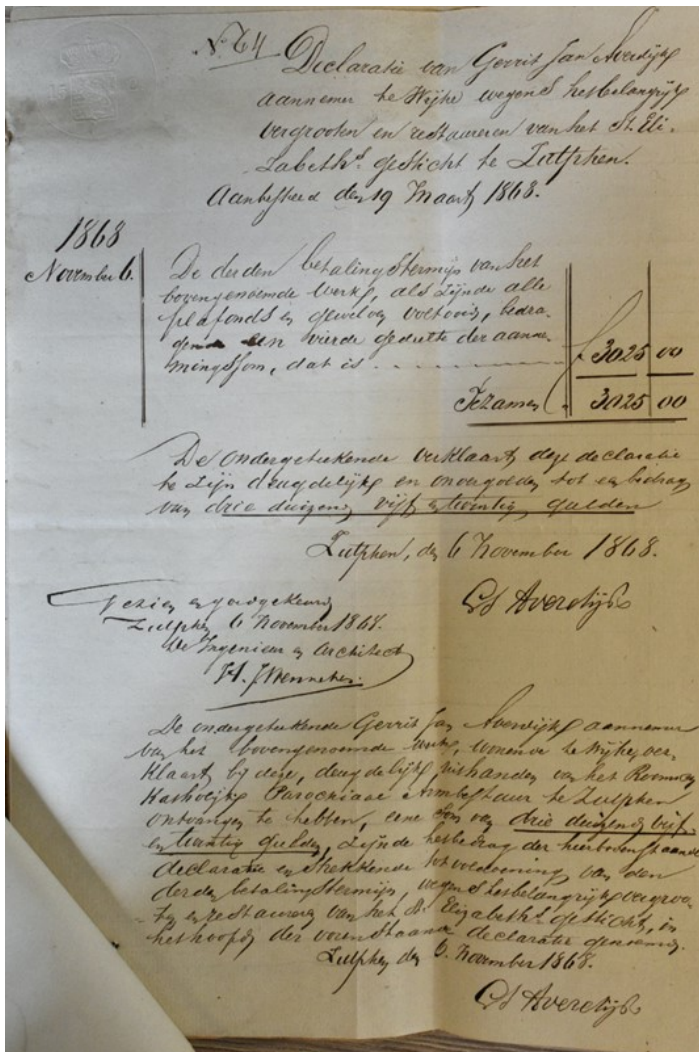 No. 64 Declaratie van Gerrit Jan Averdijk
aannemer te Wijhe wegens het belangrijk
vergrooten en restaureren van het St. Eli-
zabeths gesticht te Zutphen.
Aanbesteed den 19 Maart 1868.
1868
November 6.
De derden betalingstermijn van het
bovengenoemde werk, als zijnde alle
plafonds en gewelven voltooid, bedra-
gende een vierde gedeelte der aanne-
mingssom, dat is . . . . . . . . ƒ 3025 00
Tezamen " 3025 00
De ondergeteekende verklaart deze declaratie
te zijn deugdelijk en onvergolden tot een bedrag
van drie duizend vijf en twintig gulden
Zutphen, den 6 November 1868.
GJ Averdijk
Gezien en goedgekeurd
Zutphen 6 November 1868.
De Ingenieur en Architect
H. J. Wennekers.
De ondergeteekende Gerrit Jan Averdijk aannemer
van het bovengenoemde werk, wonende te Wijhe ver-
klaart bij deze, deugdelijk uit handen van het Roomsch
Katholijk Parochiaal Armbestuur te Zutphen
ontvangen te hebben, eene som van drie duizend vijf
en twintig gulden, zijnde het bedrag der hierboven staande
declaratie en strekkende tot voldoening van den
derden betalingstermijn, wegens het belangrijk vergroo-
ten en restaureren van het St. Elizabeths gesticht, in
het hoofd der vorenstaande declaratie genoemd.
Zutphen den 6. November 1868.
GJ Averdijk